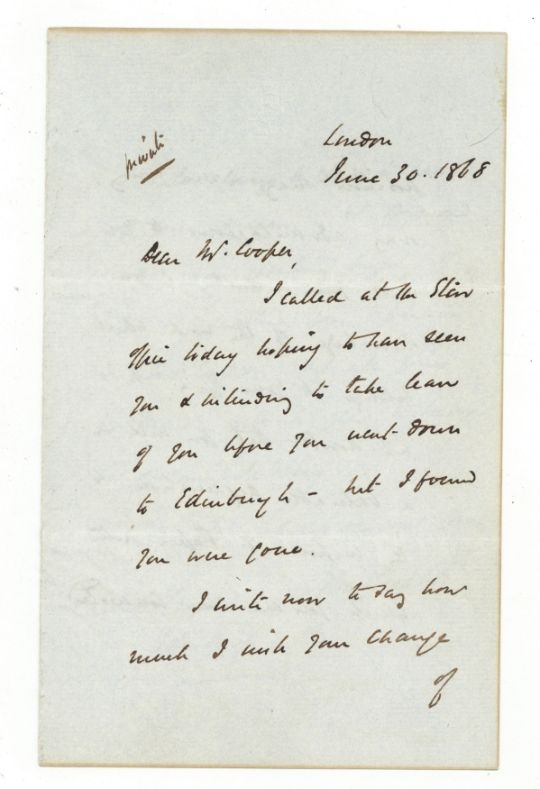 private
London
June 30. 1868
Dear Mr. Cooper,
I called at the Star
office today hoping to have seen
you & intending to take leave
of you before you went down
to Edinburgh - but I found
you were gone.
I write now to say how
much I wish your change
of